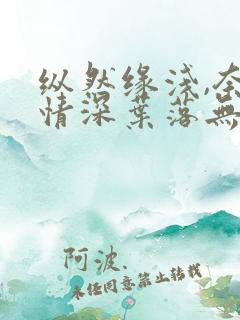 纵然缘浅,奈
情深叶落无
阿波.
未经同意禁止转载